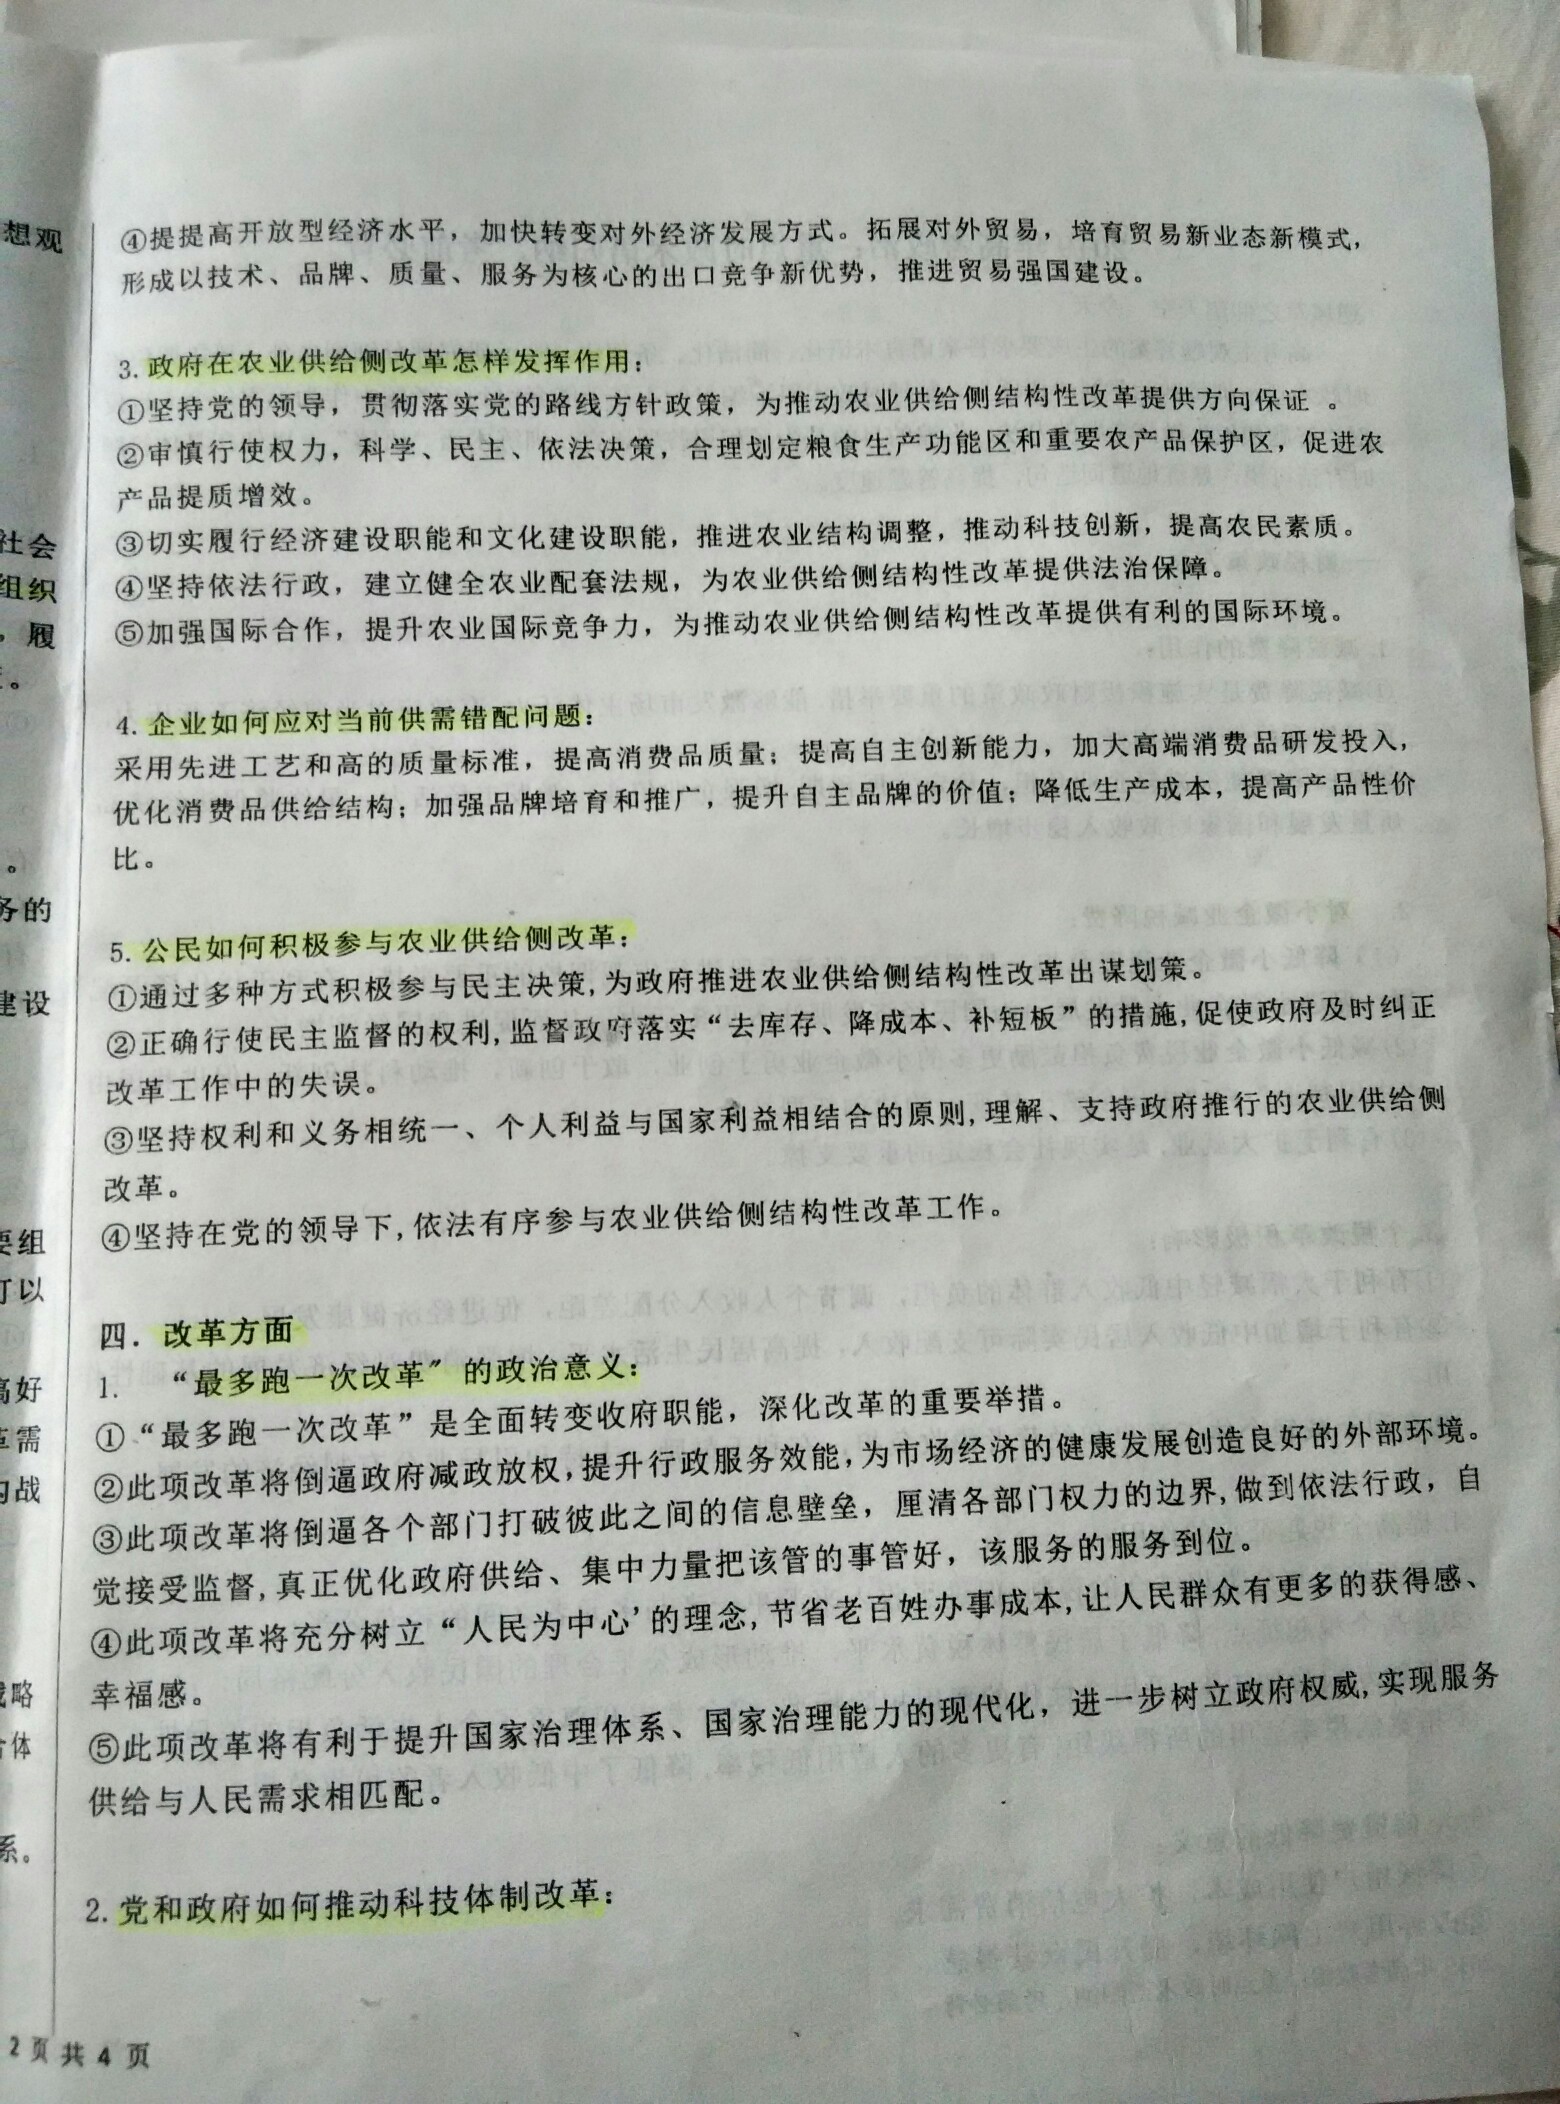 想观
社会
组织
，履
。
。
务的
建设
要组
可以
搞好
革需
的战
战略
合体
系。
④提提高开放型经济水平，加快转变对外经济发展方式。拓展对外贸易，培育贸易新业态新模式，
形成以技术、品牌、质量、服务为核心的出口竞争新优势，推进贸易强国建设。
3. 政府在农业供给侧改革怎样发挥作用：
①坚持党的领导，贯彻落实党的路线方针政策，为推动农业供给侧结构性改革提供方向保证 。
②审慎行使权力，科学、民主、依法决策，合理划定粮食生产功能区和重要农产品保护区，促进农
产品提质增效。
③切实履行经济建设职能和文化建设职能，推进农业结构调整，推动科技创新，提高农民素质。
④坚持依法行政，建立健全农业配套法规，为农业供给侧结构性改革提供法治保障。
⑤加强国际合作，提升农业国际竞争力，为推动农业供给侧结构性改革提供有利的国际环境。
4. 企业如何应对当前供需错配问题：
采用先进工艺和高的质量标准，提高消费品质量；提高自主创新能力，加大高端消费品研发投入，
优化消费品供给结构；加强品牌培育和推广，提升自主品牌的价值；降低生产成本，提高产品性价
比。
5. 公民如何积极参与农业供给侧改革：
①通过多种方式积极参与民主决策,为政府推进农业供给侧结构性改革出谋划策。
②正确行使民主监督的权利,监督政府落实“去库存、降成本、补短板”的措施,促使政府及时纠正
改革工作中的失误。
③坚持权利和义务相统一、个人利益与国家利益相结合的原则,理解、支持政府推行的农业供给侧
改革。
④坚持在党的领导下,依法有序参与农业供给侧结构性改革工作。
四．改革方面
1. “最多跑一次改革”的政治意义：
①“最多跑一次改革”是全面转变收府职能，深化改革的重要举措。
②此项改革将倒逼政府减政放权,提升行政服务效能,为市场经济的健康发展创造良好的外部环境。
③此项改革将倒逼各个部门打破彼此之间的信息壁垒，厘清各部门权力的边界,做到依法行政，自
觉接受监督,真正优化政府供给、集中力量把该管的事管好，该服务的服务到位。
④此项改革将充分树立“人民为中心'的理念,节省老百姓办事成本,让人民群众有更多的获得感、
幸福感。
⑤此项改革将有利于提升国家治理体系、国家治理能力的现代化，进一步树立政府权威,实现服务
供给与人民需求相匹配。
2. 党和政府如何推动科技体制改革：
2 页 共 4 页